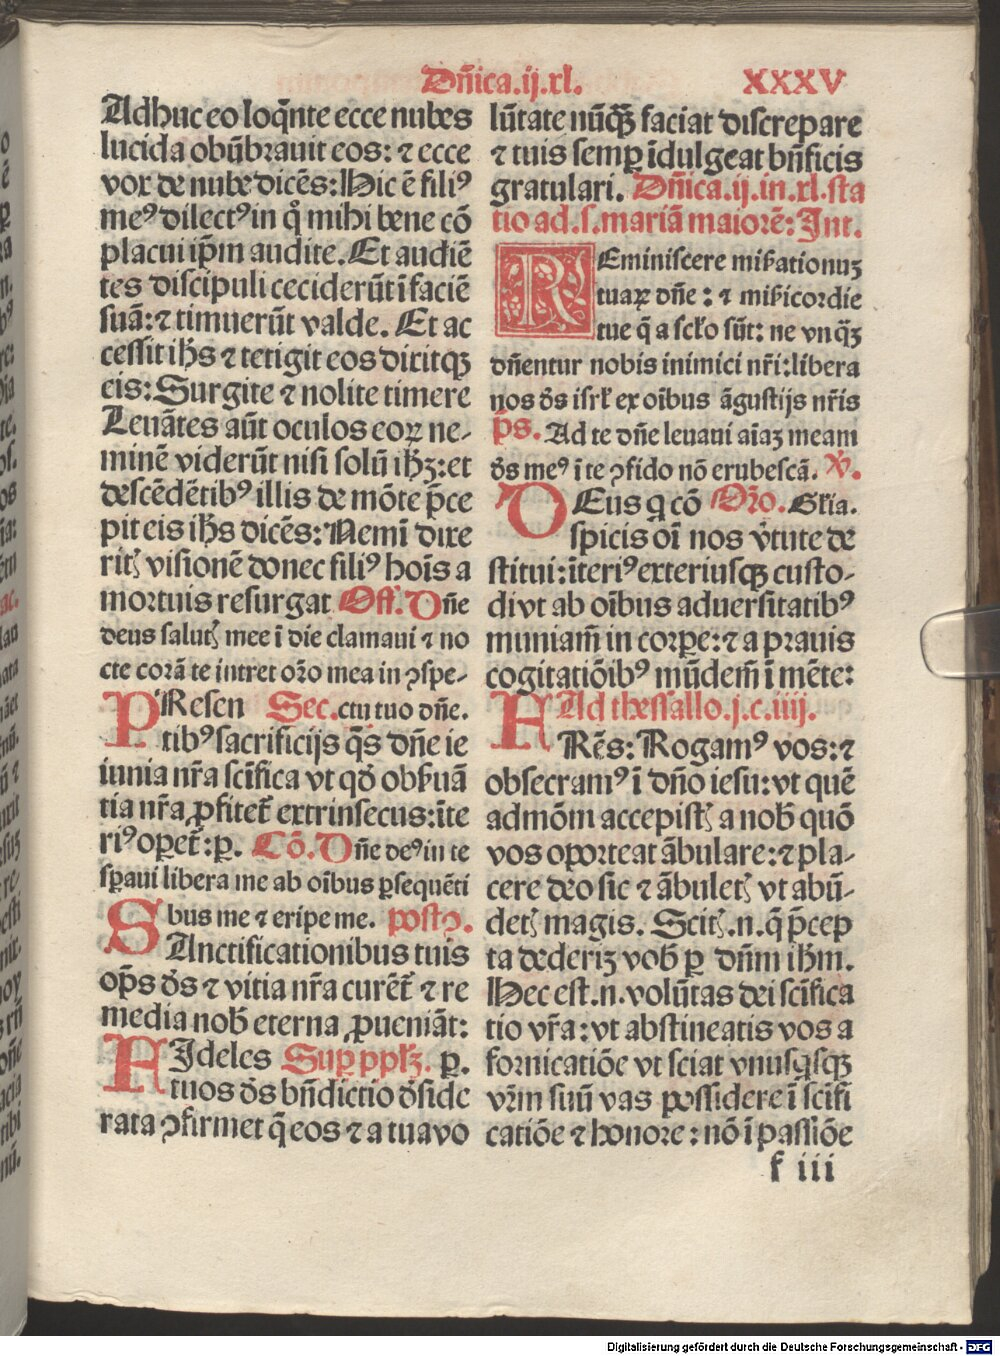 Dn̄ica.ij.xl. XXXV
Adhuc eo loqn̄te ecce nubes
lucida obūbrauit eos: ⁊ ecce
vox de nube dicēs: Hic ē filiꝰ
meꝰ dilectꝰ in q̊ mihi bene cō
placui ip̄m audite. Et audiē
tes discipuli ceciderūt ī faciē
suā: ⁊ timuerūt valde. Et ac
cessit ih̄s ⁊ tetigit eos dixitqꝫ
eis: Surgite ⁊ nolite timere
Leuātes aūt oculos eoꝝ ne-
minē viderūt nisi solū ih̄ꝫ: et
descēdētibꝰ illis de mōte p̄ce
pit eis ih̄s dicēs: Nemī dixe
ritꝭ visionē donec filiꝰ hoīs a
mortuis resurgat Off. Dn̄e
deus salutꝭ mee ī die clamaui ⁊ no
cte corā te intret or̄o mea in ꝯspe-
PResen Sec. ctu tuo dn̄e.
tibꝰ sacrificijs q̄s dn̄e ie
iunia nr̄a scīfica vt qd̄ obẜuā
tia nr̄a ꝓfitet̄ extrinsecus: īte
riꝰ oꝑet̄: ꝑ. Cō. Dn̄e deꝰ in te
sꝑaui libera me ab oībus ꝑsequēti
bus me ⁊ eripe me. postꝯ.
SAnctificationibus tuis
oꝑs d̄s ⁊ vitia nr̄a curēt̄ ⁊ re
media nob̄ eterna ꝓueniāt:
FIdeles Suꝑ pplꝫ. ꝑ.
tuos d̄s bn̄dictio d̄side
rata ꝯfirmet q̄ eos ⁊ a tua vo
lūtate nūqꝫ faciat discrepare
⁊ tuis semꝑ īdulgeat bn̄ficis
gratulari. Dn̄ica.ij.in.xl.sta
tio ad.s.mariā maiorē: Int.
REminiscere miẜationuꝫ
tuaꝝ dn̄e: ⁊ miẜicordie
tue q̄ a scło sūt: ne vnqꝫ
dn̄entur nobis inimici nr̄i: libera
nos d̄s isrł ex oībus āgustijs nr̄is
p̄s. Ad te dn̄e leuaui aīaꝫ meam
d̄s meꝰ ī te ꝯfido nō erubescā. ℣.
DEus q cō Or̄o. Gl̄ia.
spicis oī nos v̄tute de
stitui: īteriꝰ exteriusqꝫ custo-
di vt ab oībus aduersitatibꝰ
muniam̄ in corꝑe: ⁊ a prauis
cogitatiōibꝰ mūdem̄ ī mēte:
Ad thessallo.j.c.iiij.
FRēs: Rogamꝰ vos: ⁊
obsecramꝰ ī dn̄o iesu: vt quē
admōm accepistꝭ a nob̄ quō
vos oporteat ābulare: ⁊ pla-
cere deo sic ⁊ ābuletꝭ vt abū-
detꝭ magis. Scitꝭ.n.q̄ p̄cep
ta dederiꝫ vob̄ ꝑ dn̄m ih̄m.
Hec est.n.volūtas dei scīfica
tio vr̄a: vt abstineatis vos a
fornicatiōe vt sciat vnusqsqꝫ
vr̄m suū vas possidere ī scīfi
catiōe ⁊ honore: nō ī passiōe
f iii
Digitalisierung gefördert durch die Deutsche Forschungsgemeinschaft - DFG